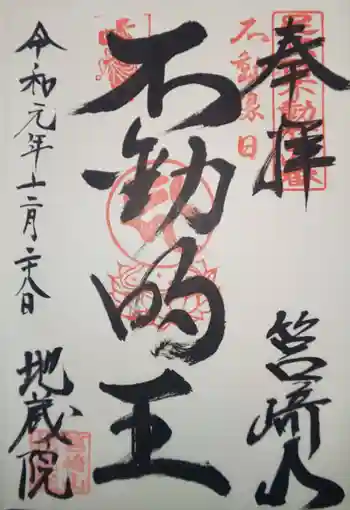 奉拝
筥崎山
不動縁日
不動明王
令和元年十二月二十八日
地蔵院